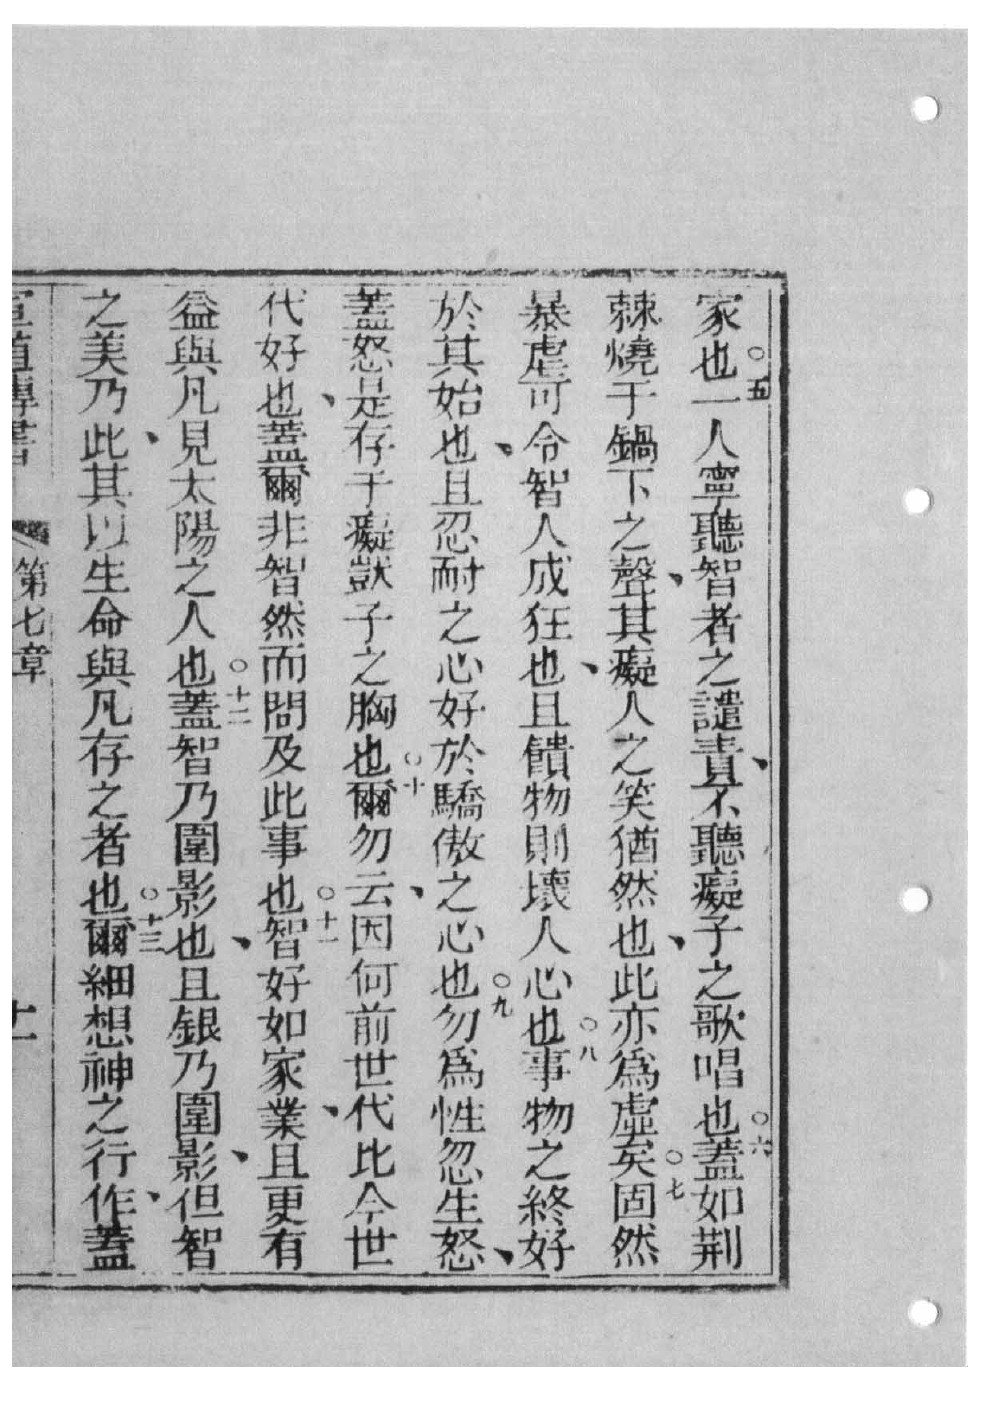 家也○五一人寧聽智者之譴責、不聽癡子之歌唱也○六蓋如荆
棘燒于鍋下之聲、其癡人之笑猶然也、此亦爲虛矣○七固然
暴虐可令智人成狂也、且饋物則壞人心也○八事物之終好
於其始也、且忍耐之心好於驕傲之心也○九勿爲性忽生怒、
蓋怒是存于癡獃子之胸也○十爾勿云、因何前世代比今世
代好也、蓋爾非智然而問及此事也○十一智好如家業、且更有
益與凡見太陽之人也○十二蓋智乃圍影也、且銀乃圍影、但智
之美乃此、其以生命與凡存之者也○十三爾細想神之行作、蓋
宣道傳書 第七章 十一